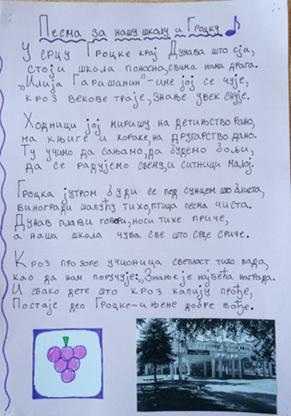 Песма за нашу школу и Гроцку
У срцу Гроцке крај Дунава што сја,
стоји школа поносна, свима нама драга.
"Илија Гарашанин" – име јој се чује,
кроз векове траје, знање увек снује.
Ходници јој миришу на детињство рано,
на књиге и кораке, на другарство дано.
Ту учимо да сањамо, да будемо бољи,
да се радујемо свему, и ситници малој.
Гроцка јутром буди се под сунцем што блиста,
виногради шапућу тихо, птица песма чиста.
Дунав плави говори, носи тихе приче,
а наша школа чува све што срце сриче.
Кроз прозоре учионица светлост тихо пада,
као да нам поручује: „Знање је највећа награда.
И свако дете што кроз капију прође,
Постаје део Гроцке – и њене добре вође.